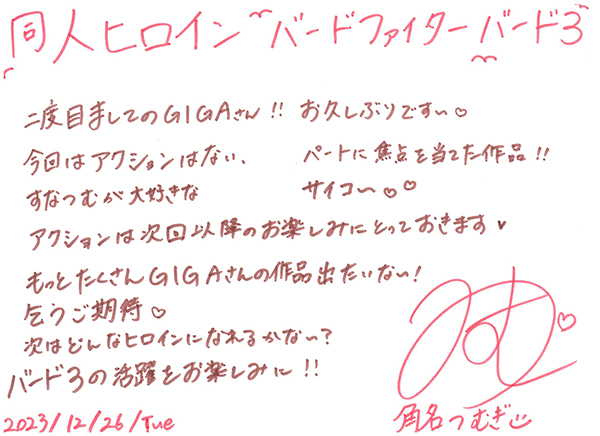 同人ヒロイン バードファイター バード3
二度目ましてのGIGAさん!! お久しぶりですぅ♡
今回はアクションはない、 パートに焦点を当てた作品!!
すなつむが大好きな サイコ〜♡♡
アクションは次回以降のお楽しみにとっておきます♥
もっとたくさんGIGAさんの作品出たいない!
乞うご期待♡
次はどんなヒロインになれるかない?
バード3の活躍をお楽しみに!!
2023/12/26/Tue
角名つむぎ